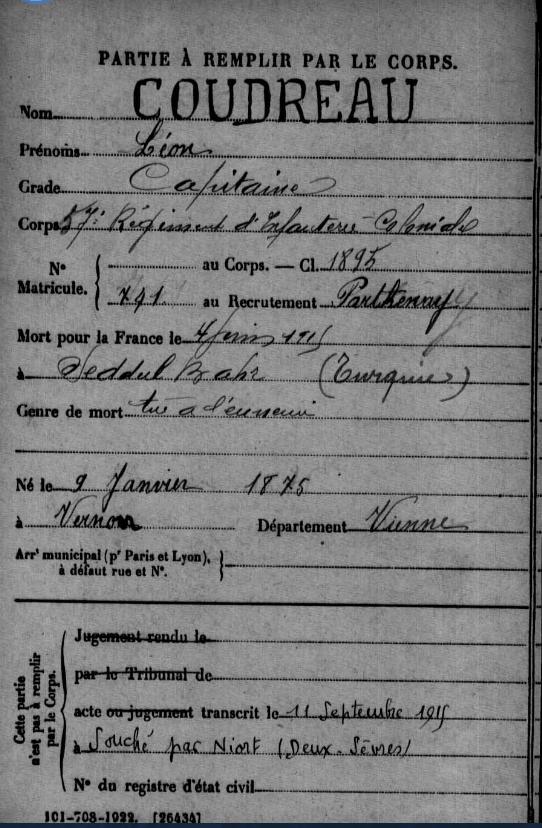 PARTIE À REMPLIR PAR LE CORPS.
Nom COUDREAU
Prénoms Léon
Grade Capitaine
Corps 57e Régiment d'Infanterie Coloniale
N° Matricule. { au Corps. — Cl. 1895
741 au Recrutement Parthenay
Mort pour la France le 4 juin 1915
à Seddul Bahr (Turquie)
Genre de mort tué à l'ennemi
Né le 9 Janvier 1875
à Vernon Département Vienne
Arrt municipal (pr Paris et Lyon), }
à défaut rue et N°.
Cette partie n'est pas à remplir par le Corps.
Jugement rendu le
par le Tribunal de
acte ou jugement transcrit le 11 Septembre 1915
à Souché par Niort (Deux-Sèvres)
N° du registre d'état civil
101-708-1922. [26434]